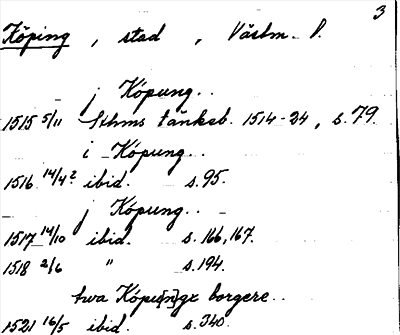 3
Köping , stad , Västm. l.
j Köpung..
1515 5/11 Sthms tänkeb. 1514-24, s.79.
i Köpung..
1516 14/4? ibid. s.95.
j Köpung..
1517 14/10 ibid. s.166,167.
1518 2/6 " s.194.
twa Köpu[n]gx borgere..
1521 16/5 ibid. s.340.